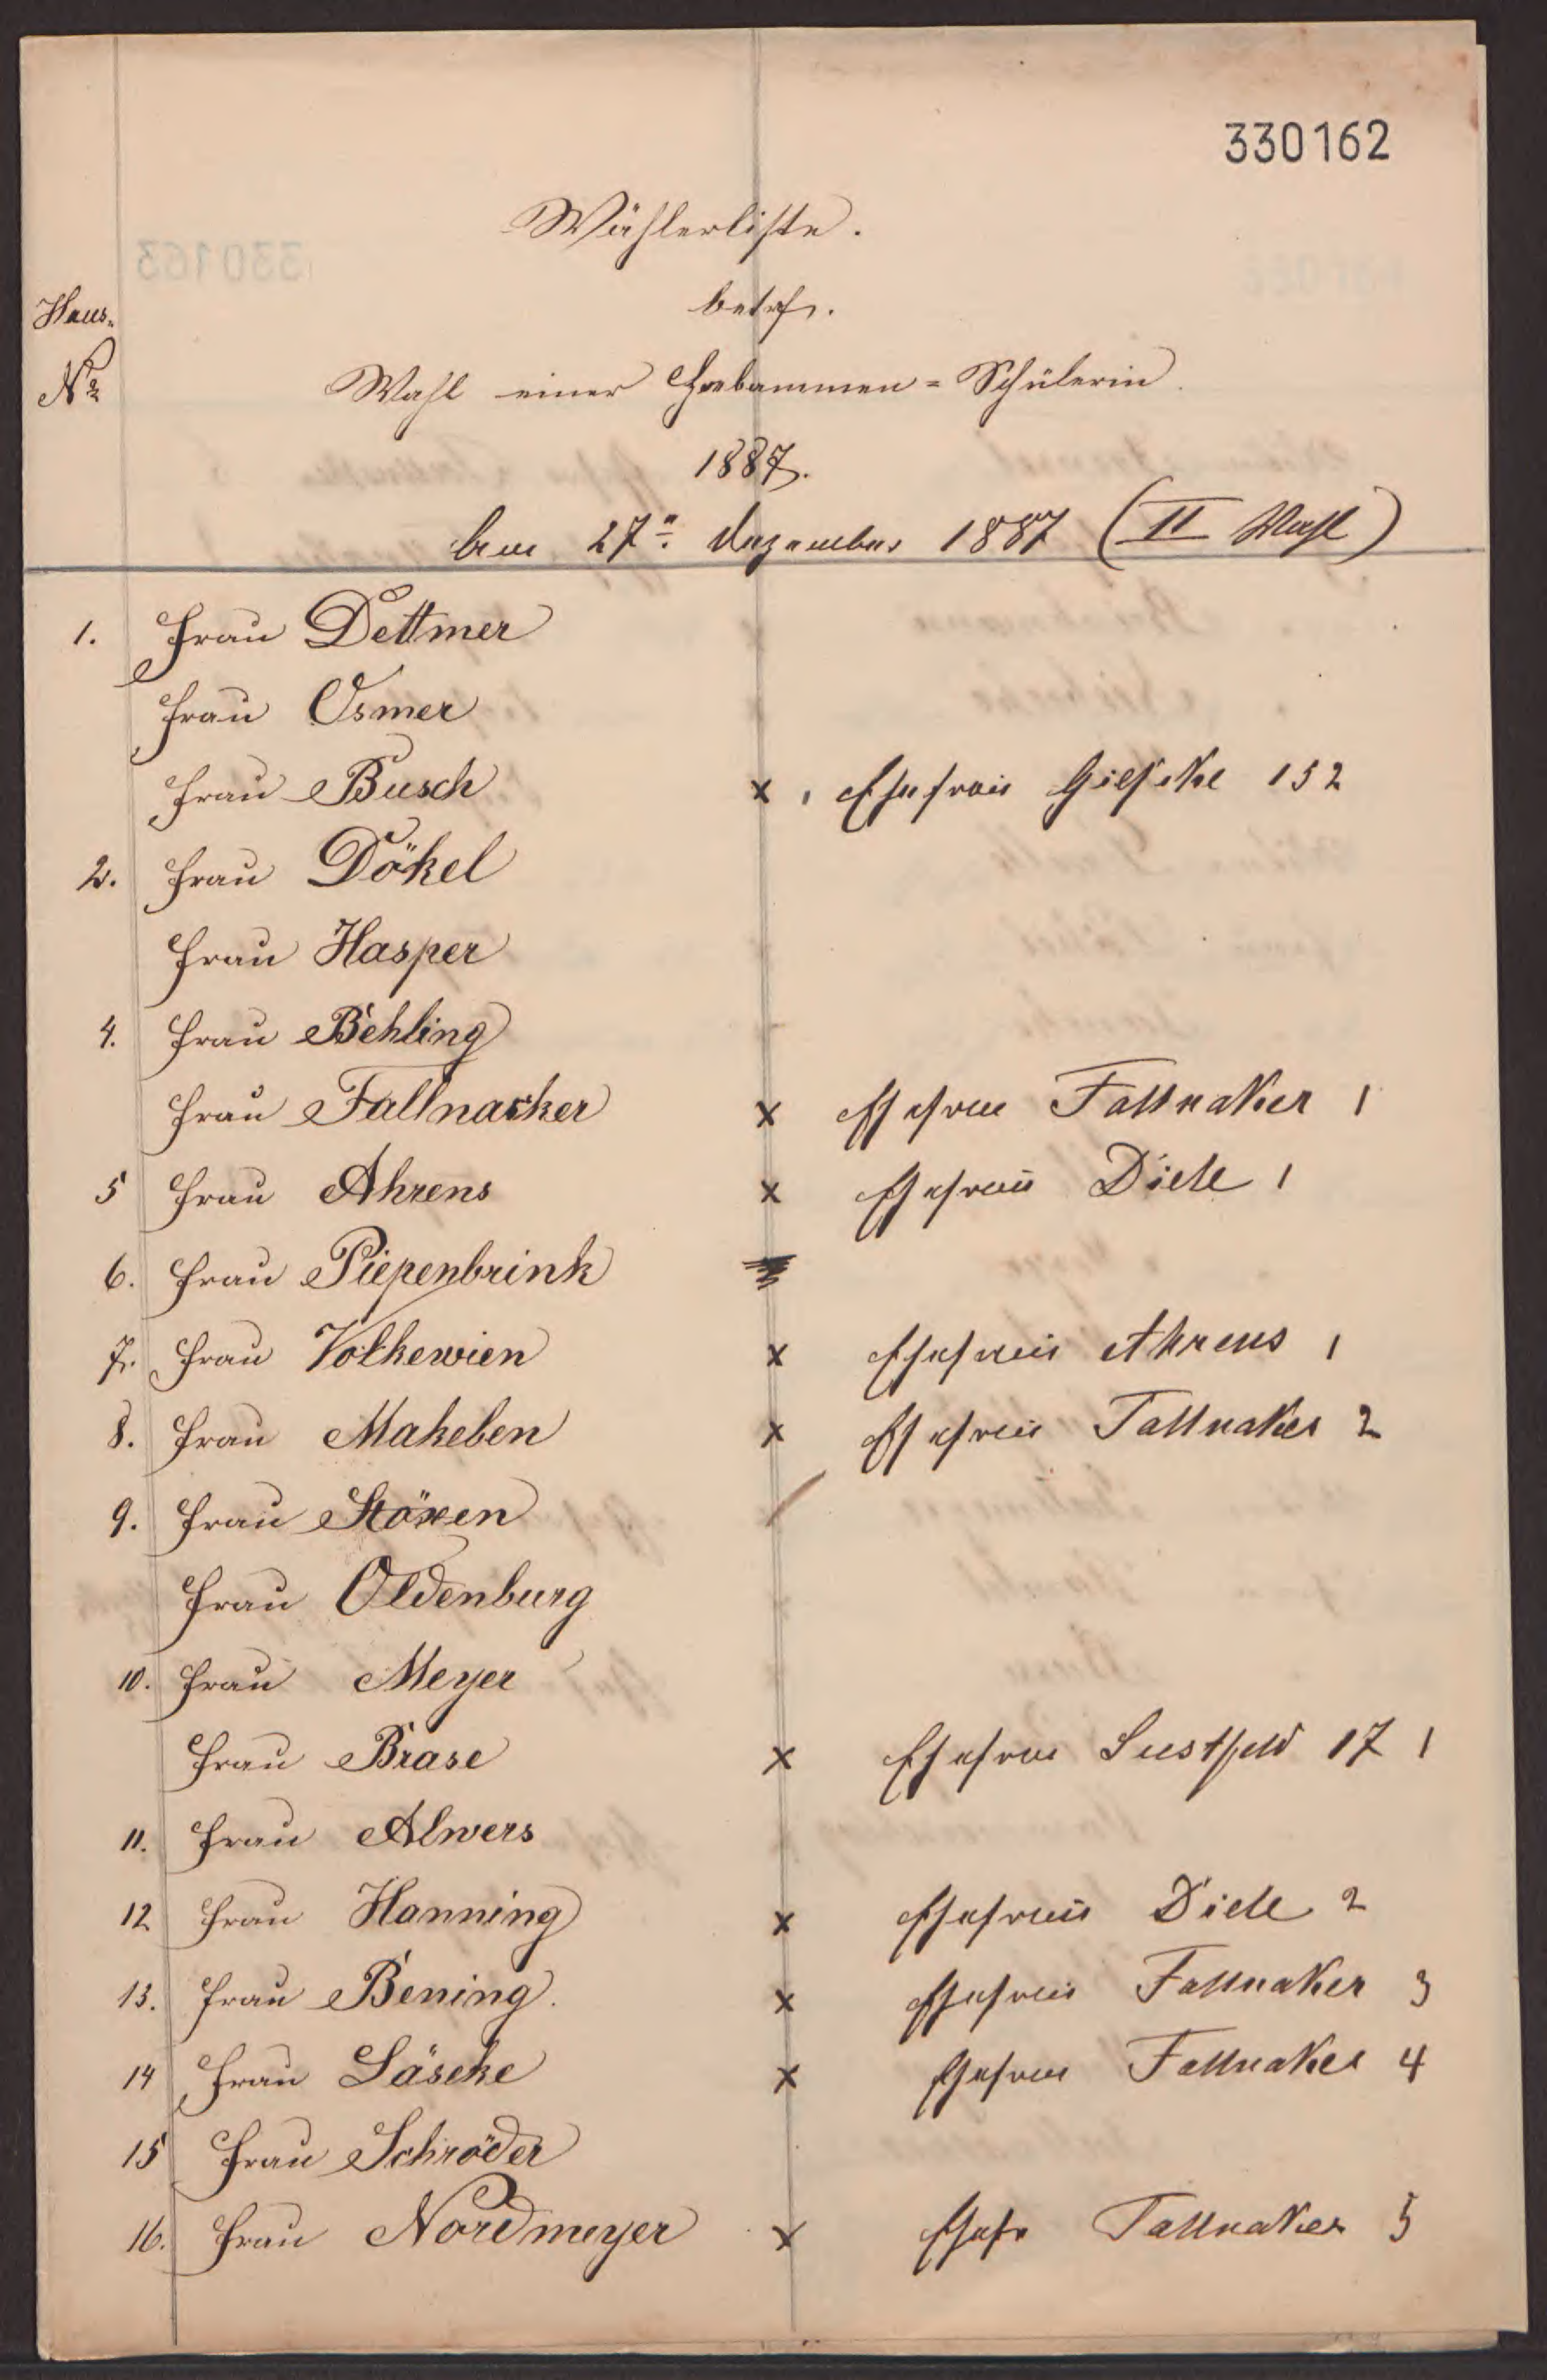 330162
Wählerliste.
betrf.
Haus-
No
Wahl einer Hebammen=Schülerin.
1887.
Am 27ten Dezember 1887 (II Wahl)
1. Frau Dettmer
Frau Osmer
Frau Busch x 1 Ehefrau Gieseke 152
2. Frau Dökel
Frau Hasper
4. Frau Behling
Frau Fallnacker x Ehefrau Fallnaker 1
5 Frau Ahrens x Ehefrau Diele 1
6. Frau Piepenbrink
7. Frau Volkewien x Ehefrau Ahrens 1
8. Frau Makeben x Ehefrau Fallnaker 2
9. Frau Stöxen
Frau Oldenburg
10. Frau Meyer
Frau Brase x Ehefrau Sustfeld 17 1
11. Frau Alwers
12 Frau Hanning x Ehefrau Diele 2
13. Frau Bening. x Ehefrau Fallnaker 3
14 Frau Läseke x Ehefrau Fallnaker 4
15 Frau Schröder
16. Frau Nordmeyer x Ehefr Fallnaker 5